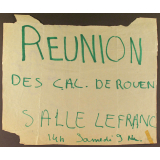 REUNION
DES GAL. DE ROUEN
SALLE LEFRANC
14h Samedi 9